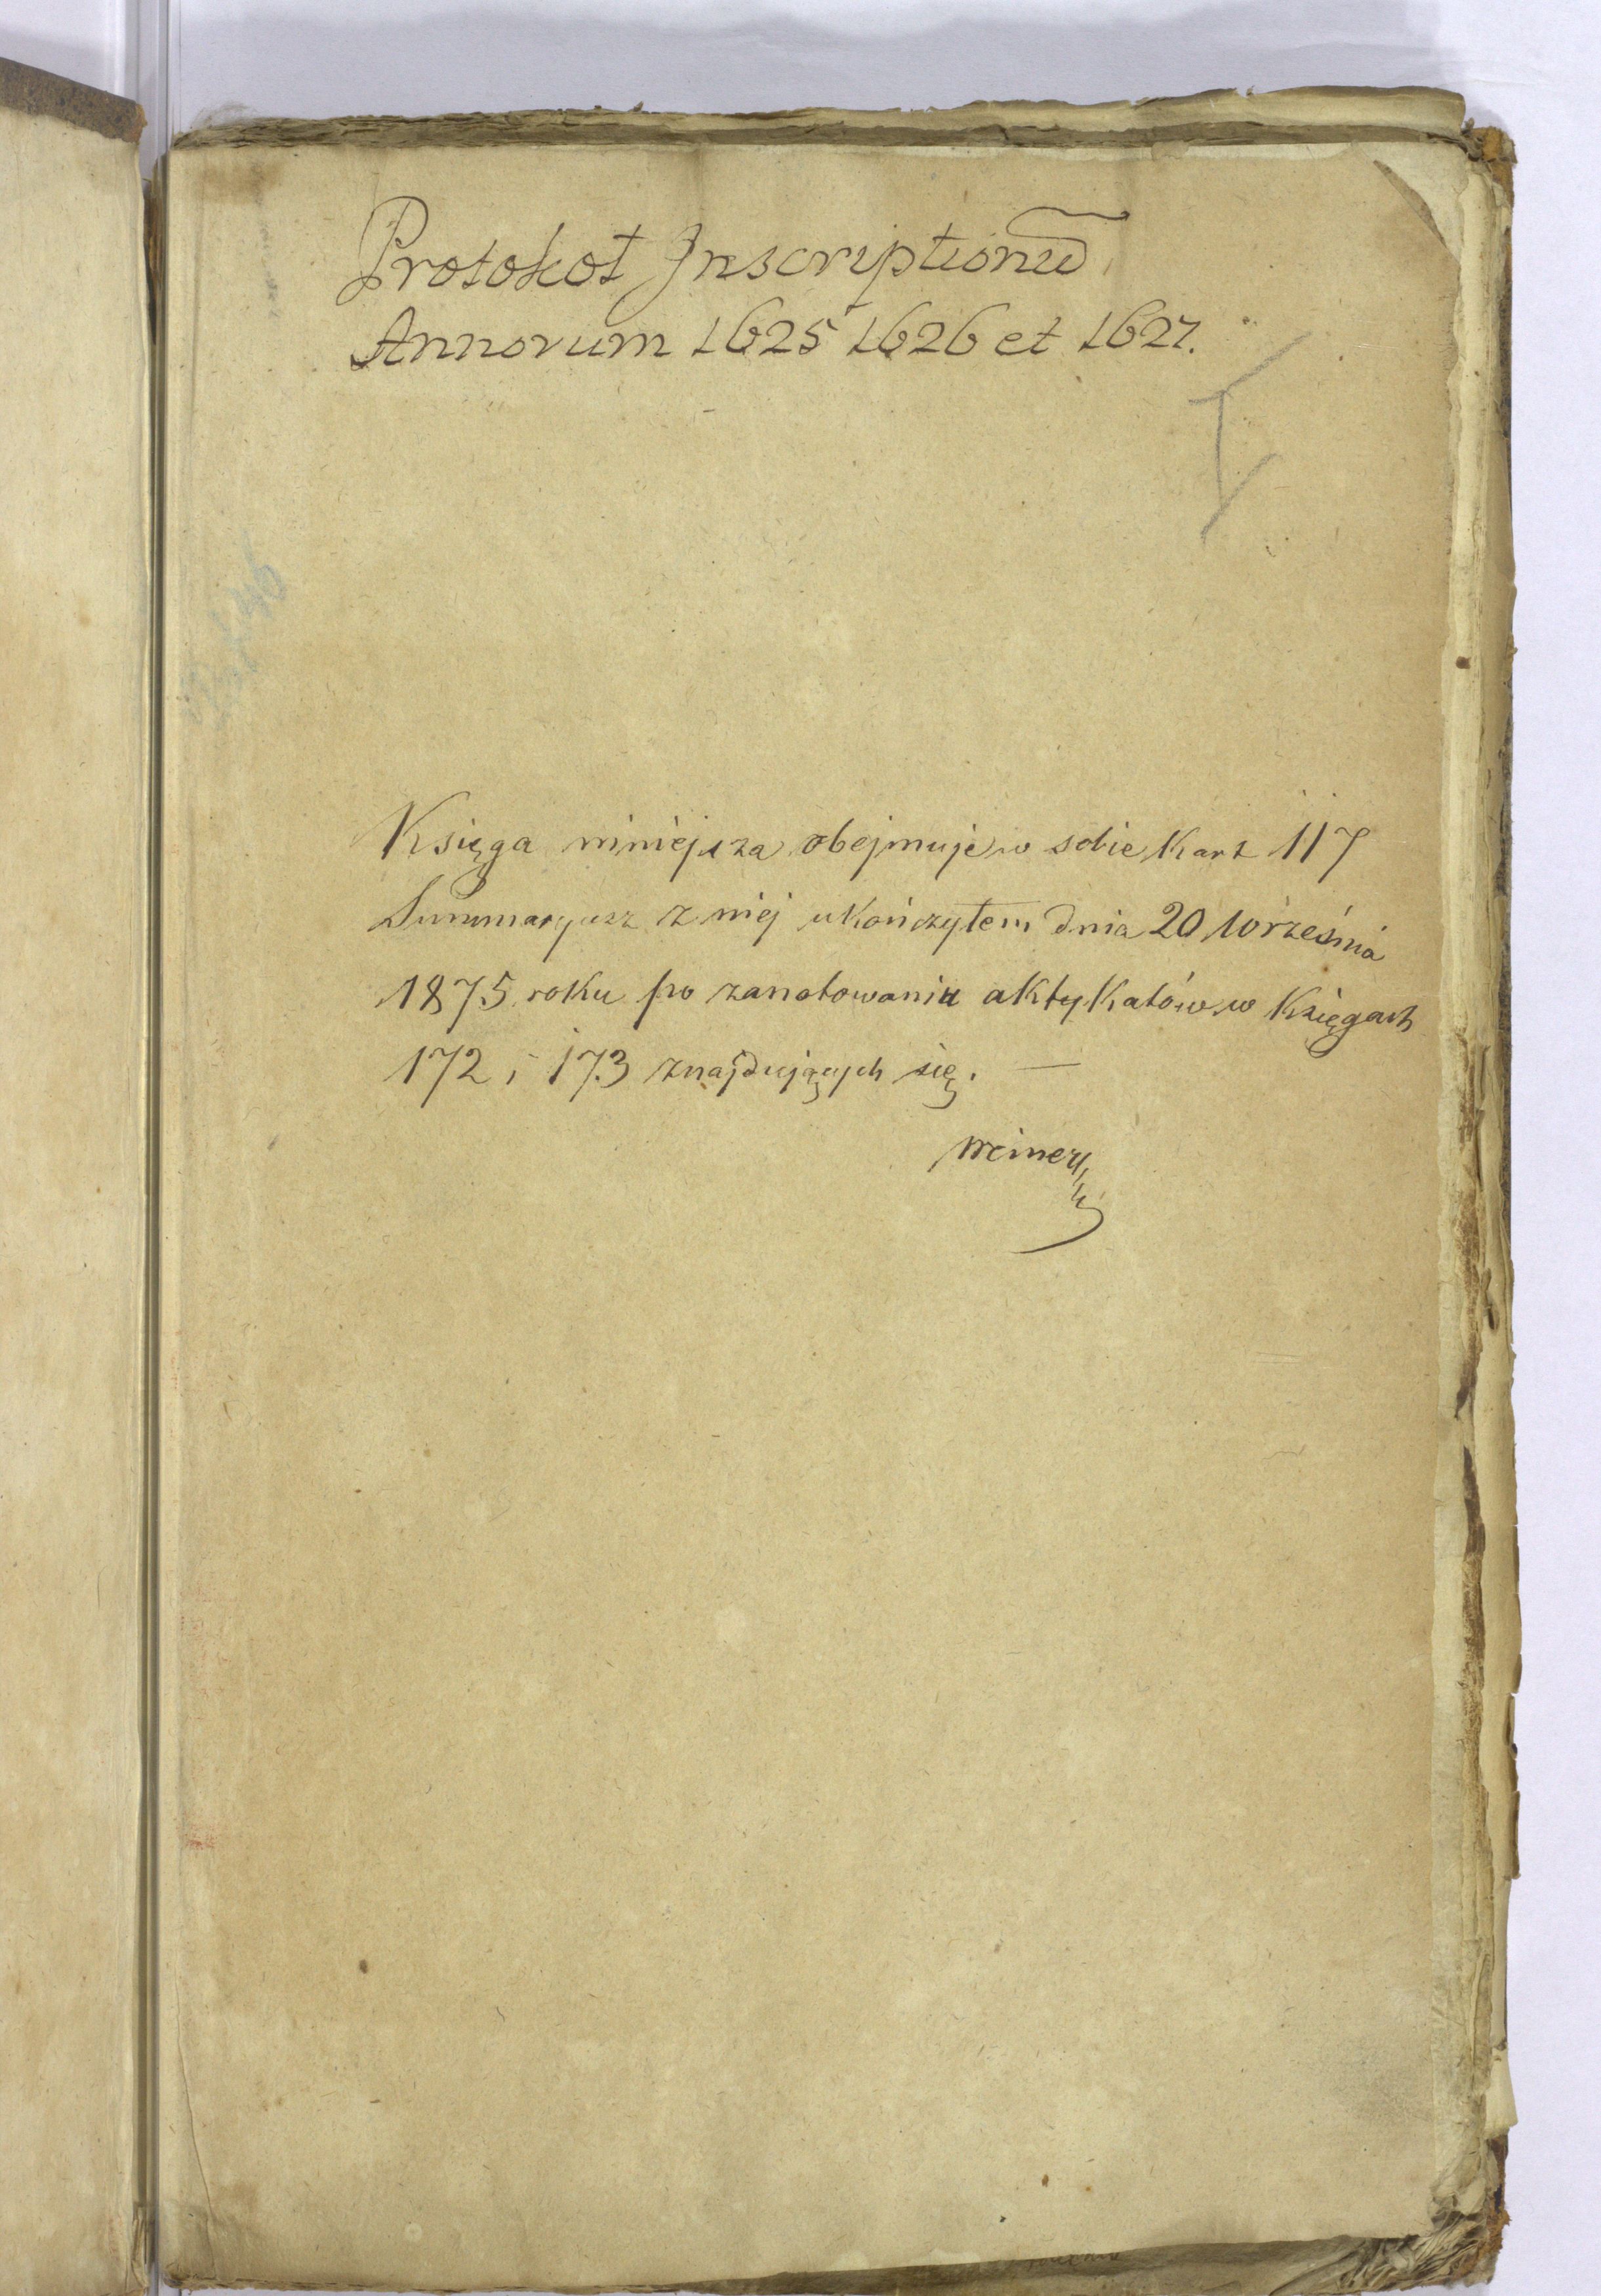 Protokoł Inscriptionū
Annorum 1625 1626 et 1627.
Księga niniejsza obejmuje w sobie kart 117
Summaryusz z niej ukończyłem dnia 20 września
1875 roku po zanotowaniu aktykatów w księgach
172 i 173 znajdujących się. —